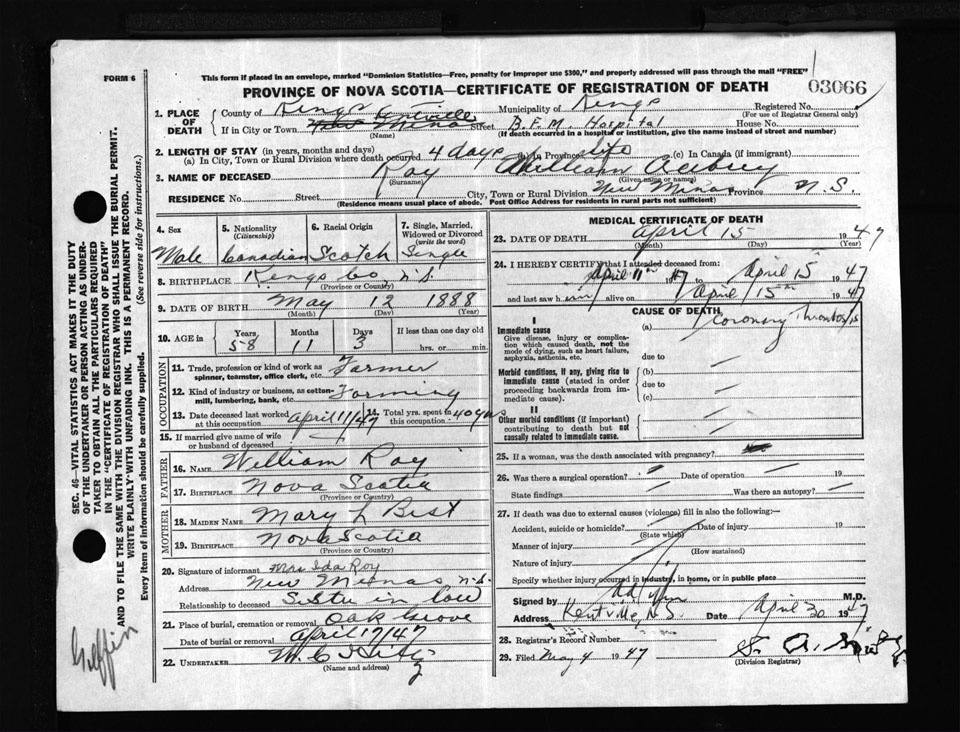 FORM 6
This form if placed in an envelope, marked "Dominion Statistics—Free, penalty for improper use $300," and properly addressed will pass through the mail "FREE"
PROVINCE OF NOVA SCOTIA—CERTIFICATE OF REGISTRATION OF DEATH
03066
1. PLACE OF DEATH
County of Kings Municipality of Kings Registered No.
(For use of Registrar General only)
If in City or Town Kentville Street B.F.M. Hospital House No.
(Name) (If death occurred in a hospital or institution, give the name instead of street and number)
2. LENGTH OF STAY (in years, months and days)
(a) In City, Town or Rural Division where death occurred 4 days (b) In Province life (c) In Canada (if immigrant)
3. NAME OF DECEASED Roy William Aubrey
(Surname) (Given name or names)
RESIDENCE No. Street City, Town or Rural Division New Minas Province N.S
(Residence means usual place of abode. Post Office Address for residents in rural parts not sufficient)
4. Sex 5. Nationality (Citizenship) 6. Racial Origin 7. Single, Married, Widowed or Divorced (write the word)
Male Canadian Scotch Single
8. BIRTHPLACE Kings Co N.S.
(Province or Country)
9. DATE OF BIRTH May 12 1888
(Month) (Day) (Year)
10. AGE in Years Months Days If less than one day old
58 11 3 hrs. or min.
OCCUPATION
11. Trade, profession or kind of work as spinner, teamster, office clerk, etc. Farmer
12. Kind of industry or business, as cotton-mill, lumbering, bank, etc. Farming
13. Date deceased last worked at this occupation April 11/47 14. Total yrs. spent in this occupation 40 yrs
15. If married give name of wife or husband of deceased
FATHER
16. NAME William Roy
17. BIRTHPLACE Nova Scotia
(Province or Country)
MOTHER
18. MAIDEN NAME Mary L Best
19. BIRTHPLACE Nova Scotia
(Province or Country)
20. Signature of informant Mrs Ida Roy
Address New Minas N.S.
Relationship to deceased Sister in law
21. Place of burial, cremation or removal Oak Grove
Date of burial or removal April 17/47
22. UNDERTAKER W.C. Hiltz
(Name and address)
MEDICAL CERTIFICATE OF DEATH
23. DATE OF DEATH April 15 1947
(Month) (Day) (Year)
24. I HEREBY CERTIFY that I attended deceased from:
April 11th 1947 to April 15 1947
and last saw him alive on April 15th 1947
CAUSE OF DEATH
I
Immediate cause (a) Coronary Thrombosis
Give disease, injury or complication which caused death, not the mode of dying, such as heart failure, asphyxia, asthenia, etc.
due to
Morbid conditions, if any, giving rise to immediate cause (stated in order proceeding backwards from immediate cause).
(b)
due to
(c)
II
Other morbid conditions (if important) contributing to death but not causally related to immediate cause.
25. If a woman, was the death associated with pregnancy?
26. Was there a surgical operation? Date of operation 19
State findings Was there an autopsy?
27. If death was due to external causes (violence) fill in also the following:—
Accident, suicide or homicide? Date of injury 19
(State which)
Manner of injury
(How sustained)
Nature of injury
Specify whether injury occurred in industry, in home, or in public place
Signed by M.D.
Address Kentville, N.S. Date April 30 1947
28. Registrar's Record Number
29. Filed May 4 1947
(Division Registrar)
SEC. 46—VITAL STATISTICS ACT MAKES IT THE DUTY OF THE UNDERTAKER OR PERSON ACTING AS UNDERTAKER TO OBTAIN ALL THE PARTICULARS REQUIRED IN THE "CERTIFICATE OF REGISTRATION OF DEATH" AND TO FILE THE SAME WITH THE DIVISION REGISTRAR WHO SHALL ISSUE THE BURIAL PERMIT.
WRITE PLAINLY WITH UNFADING INK. THIS IS A PERMANENT RECORD.
Every item of information should be carefully supplied. (See reverse side for instructions.)